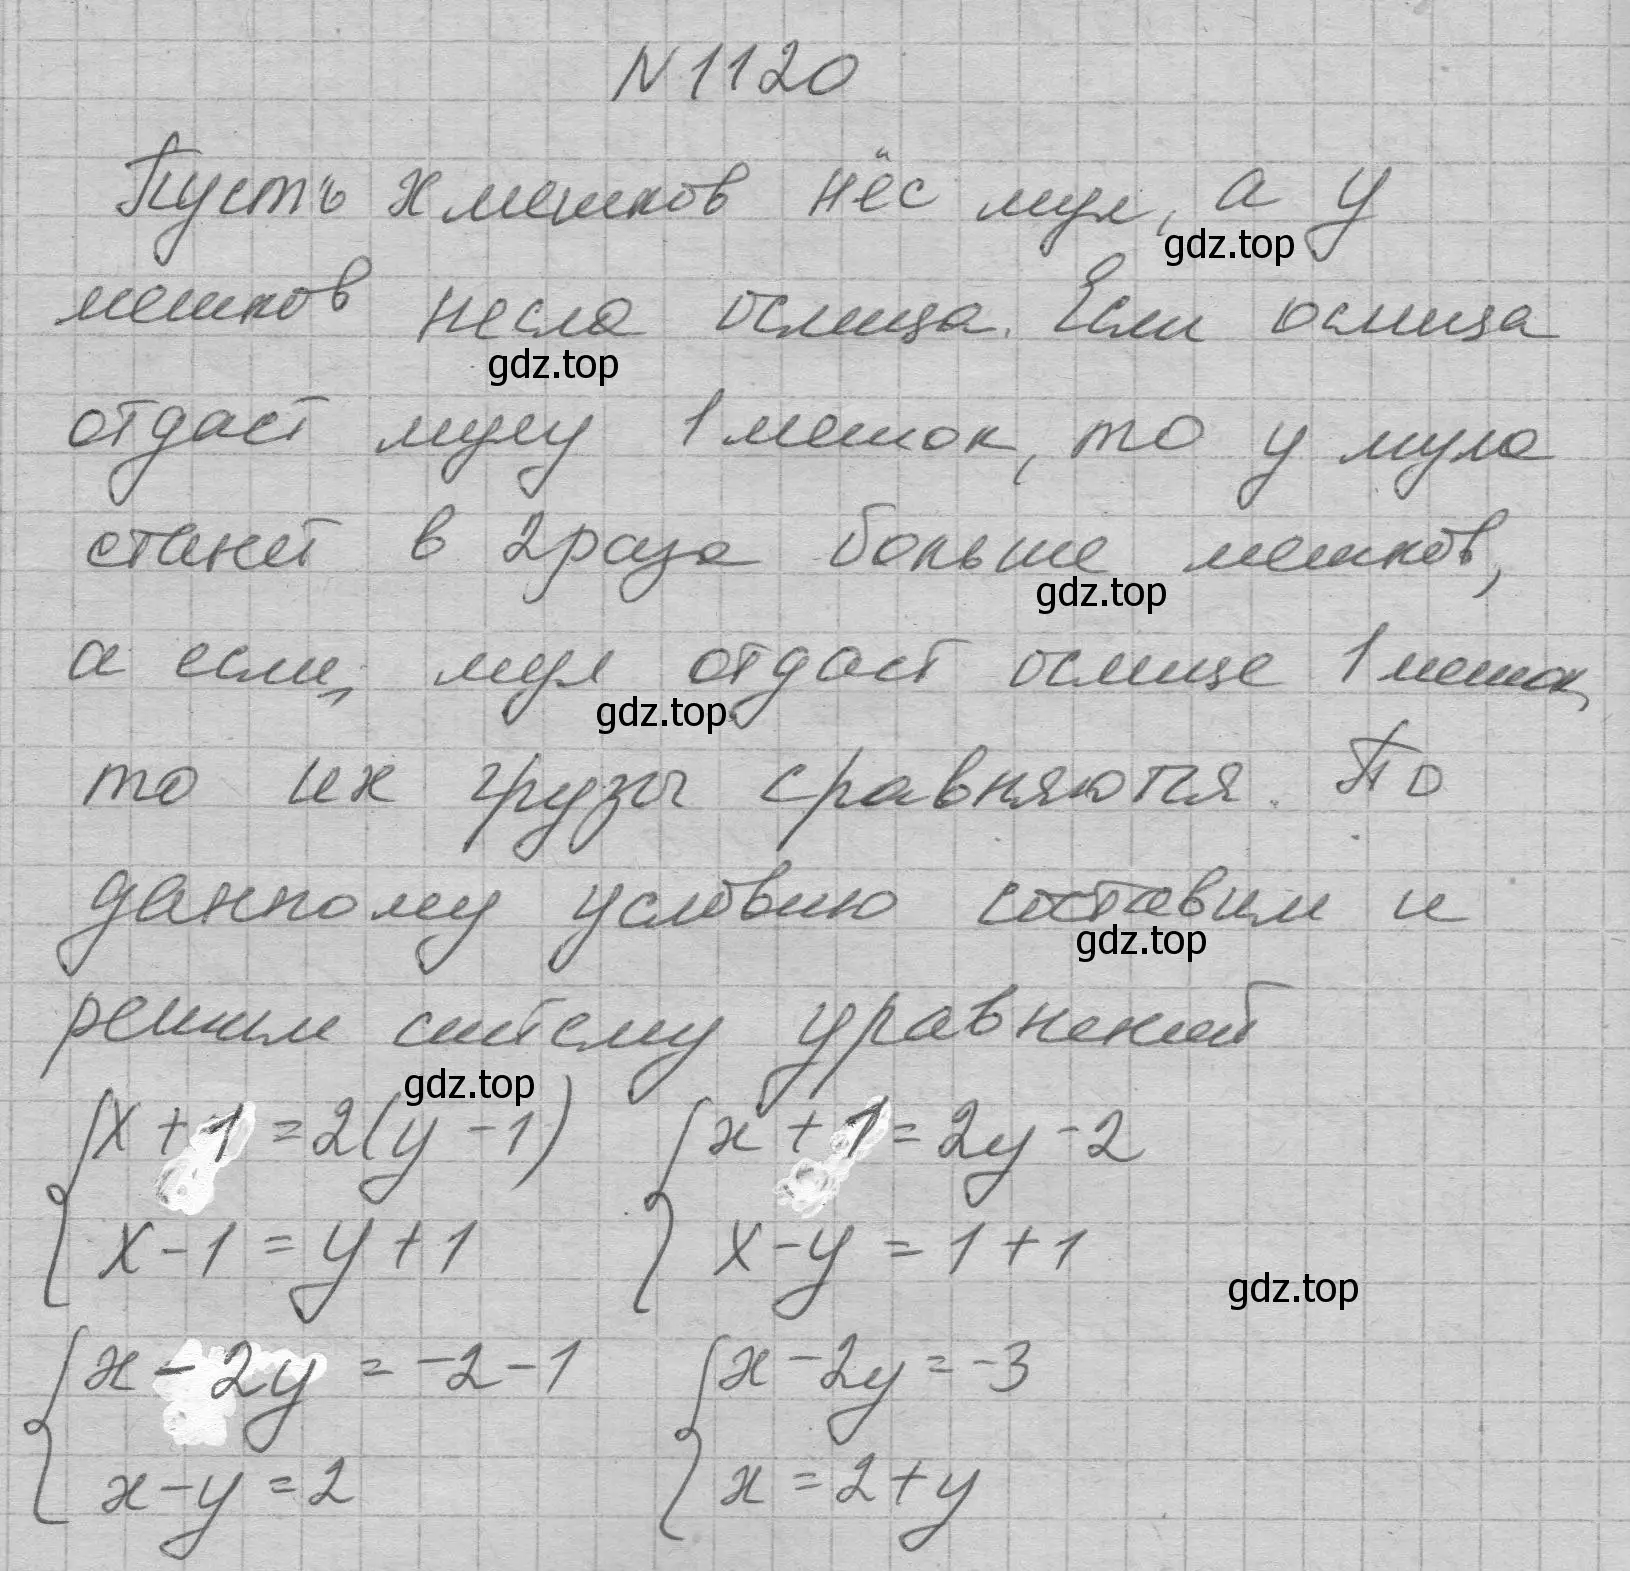 N 1120
Пусть x мешков нёс мул, а y
gdz.top
мешков несла ослица. Если ослица
gdz.top
отдаст мулу 1 мешок, то у мула
станет в 2 раза больше мешков,
gdz.top
а если, мул отдаст ослице 1 мешок,
gdz.top
то их грузы сравняются. По
данному условию составим и
gdz.top
решим систему уравнений
gdz.top
{ x + 1 = 2(y - 1)   { x + 1 = 2y - 2
{ x - 1 = y + 1   { x - y = 1 + 1
gdz.top
{ x - 2y = -2 - 1   { x - 2y = -3
{ x - y = 2   { x = 2 + y